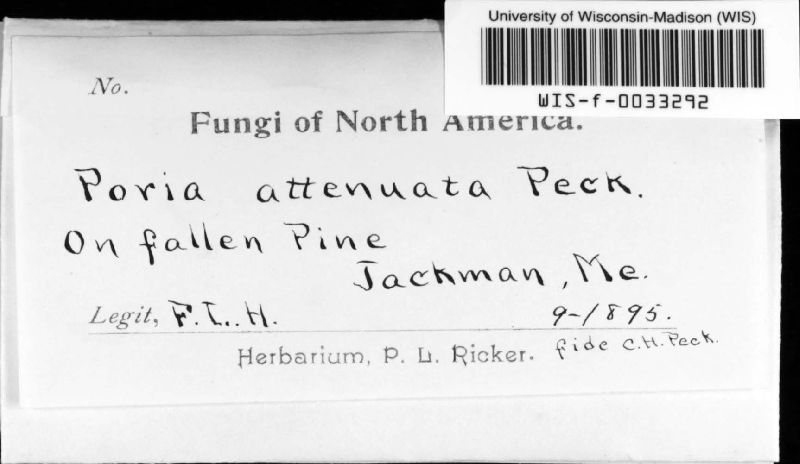 University of Wisconsin-Madison (WIS)
WIS-f-0033292
No.
Fungi of North America.
Poria attenuata Peck.
On fallen Pine
Jackman, Me.
Legit, F. L. H. 9-1895.
Herbarium, P. L. Ricker. fide C.H. Peck.